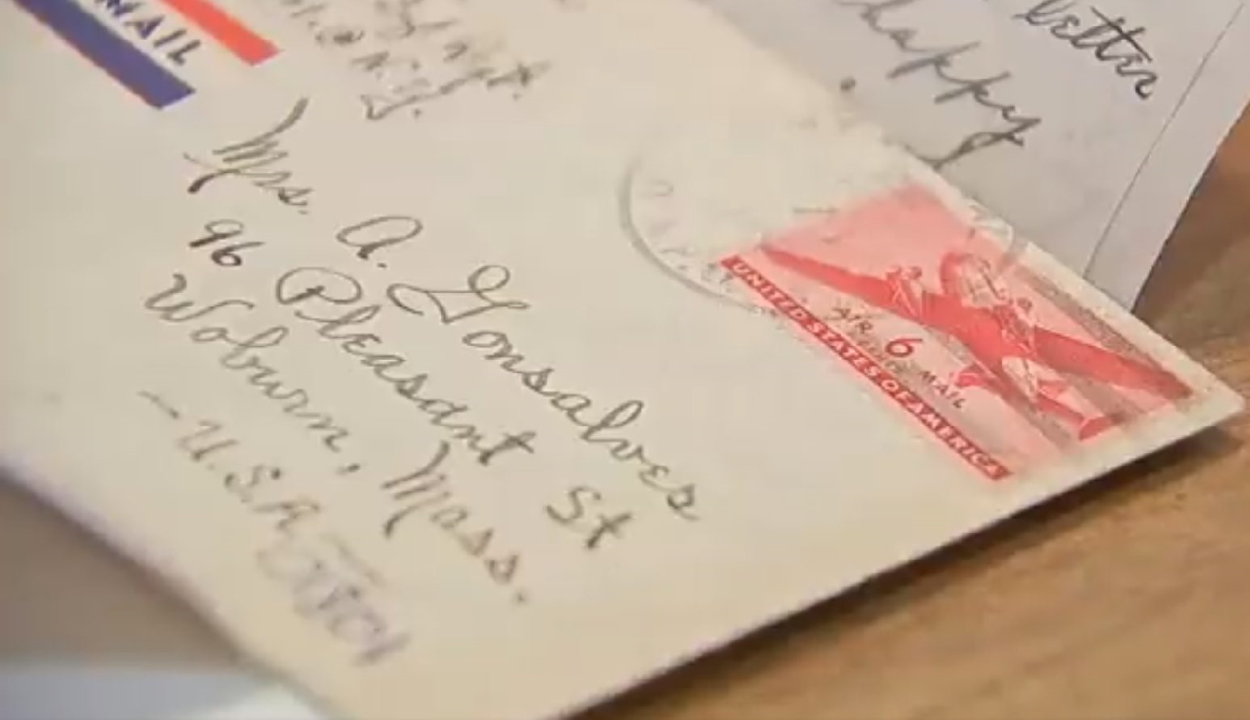 MAIL
N.Y.
Mrs. A. Gonsalves
96 Pleasant St
Woburn, Mass.
- U.S.A
UNITED STATES OF AMERICA
AIR 6 MAIL
letter
happy